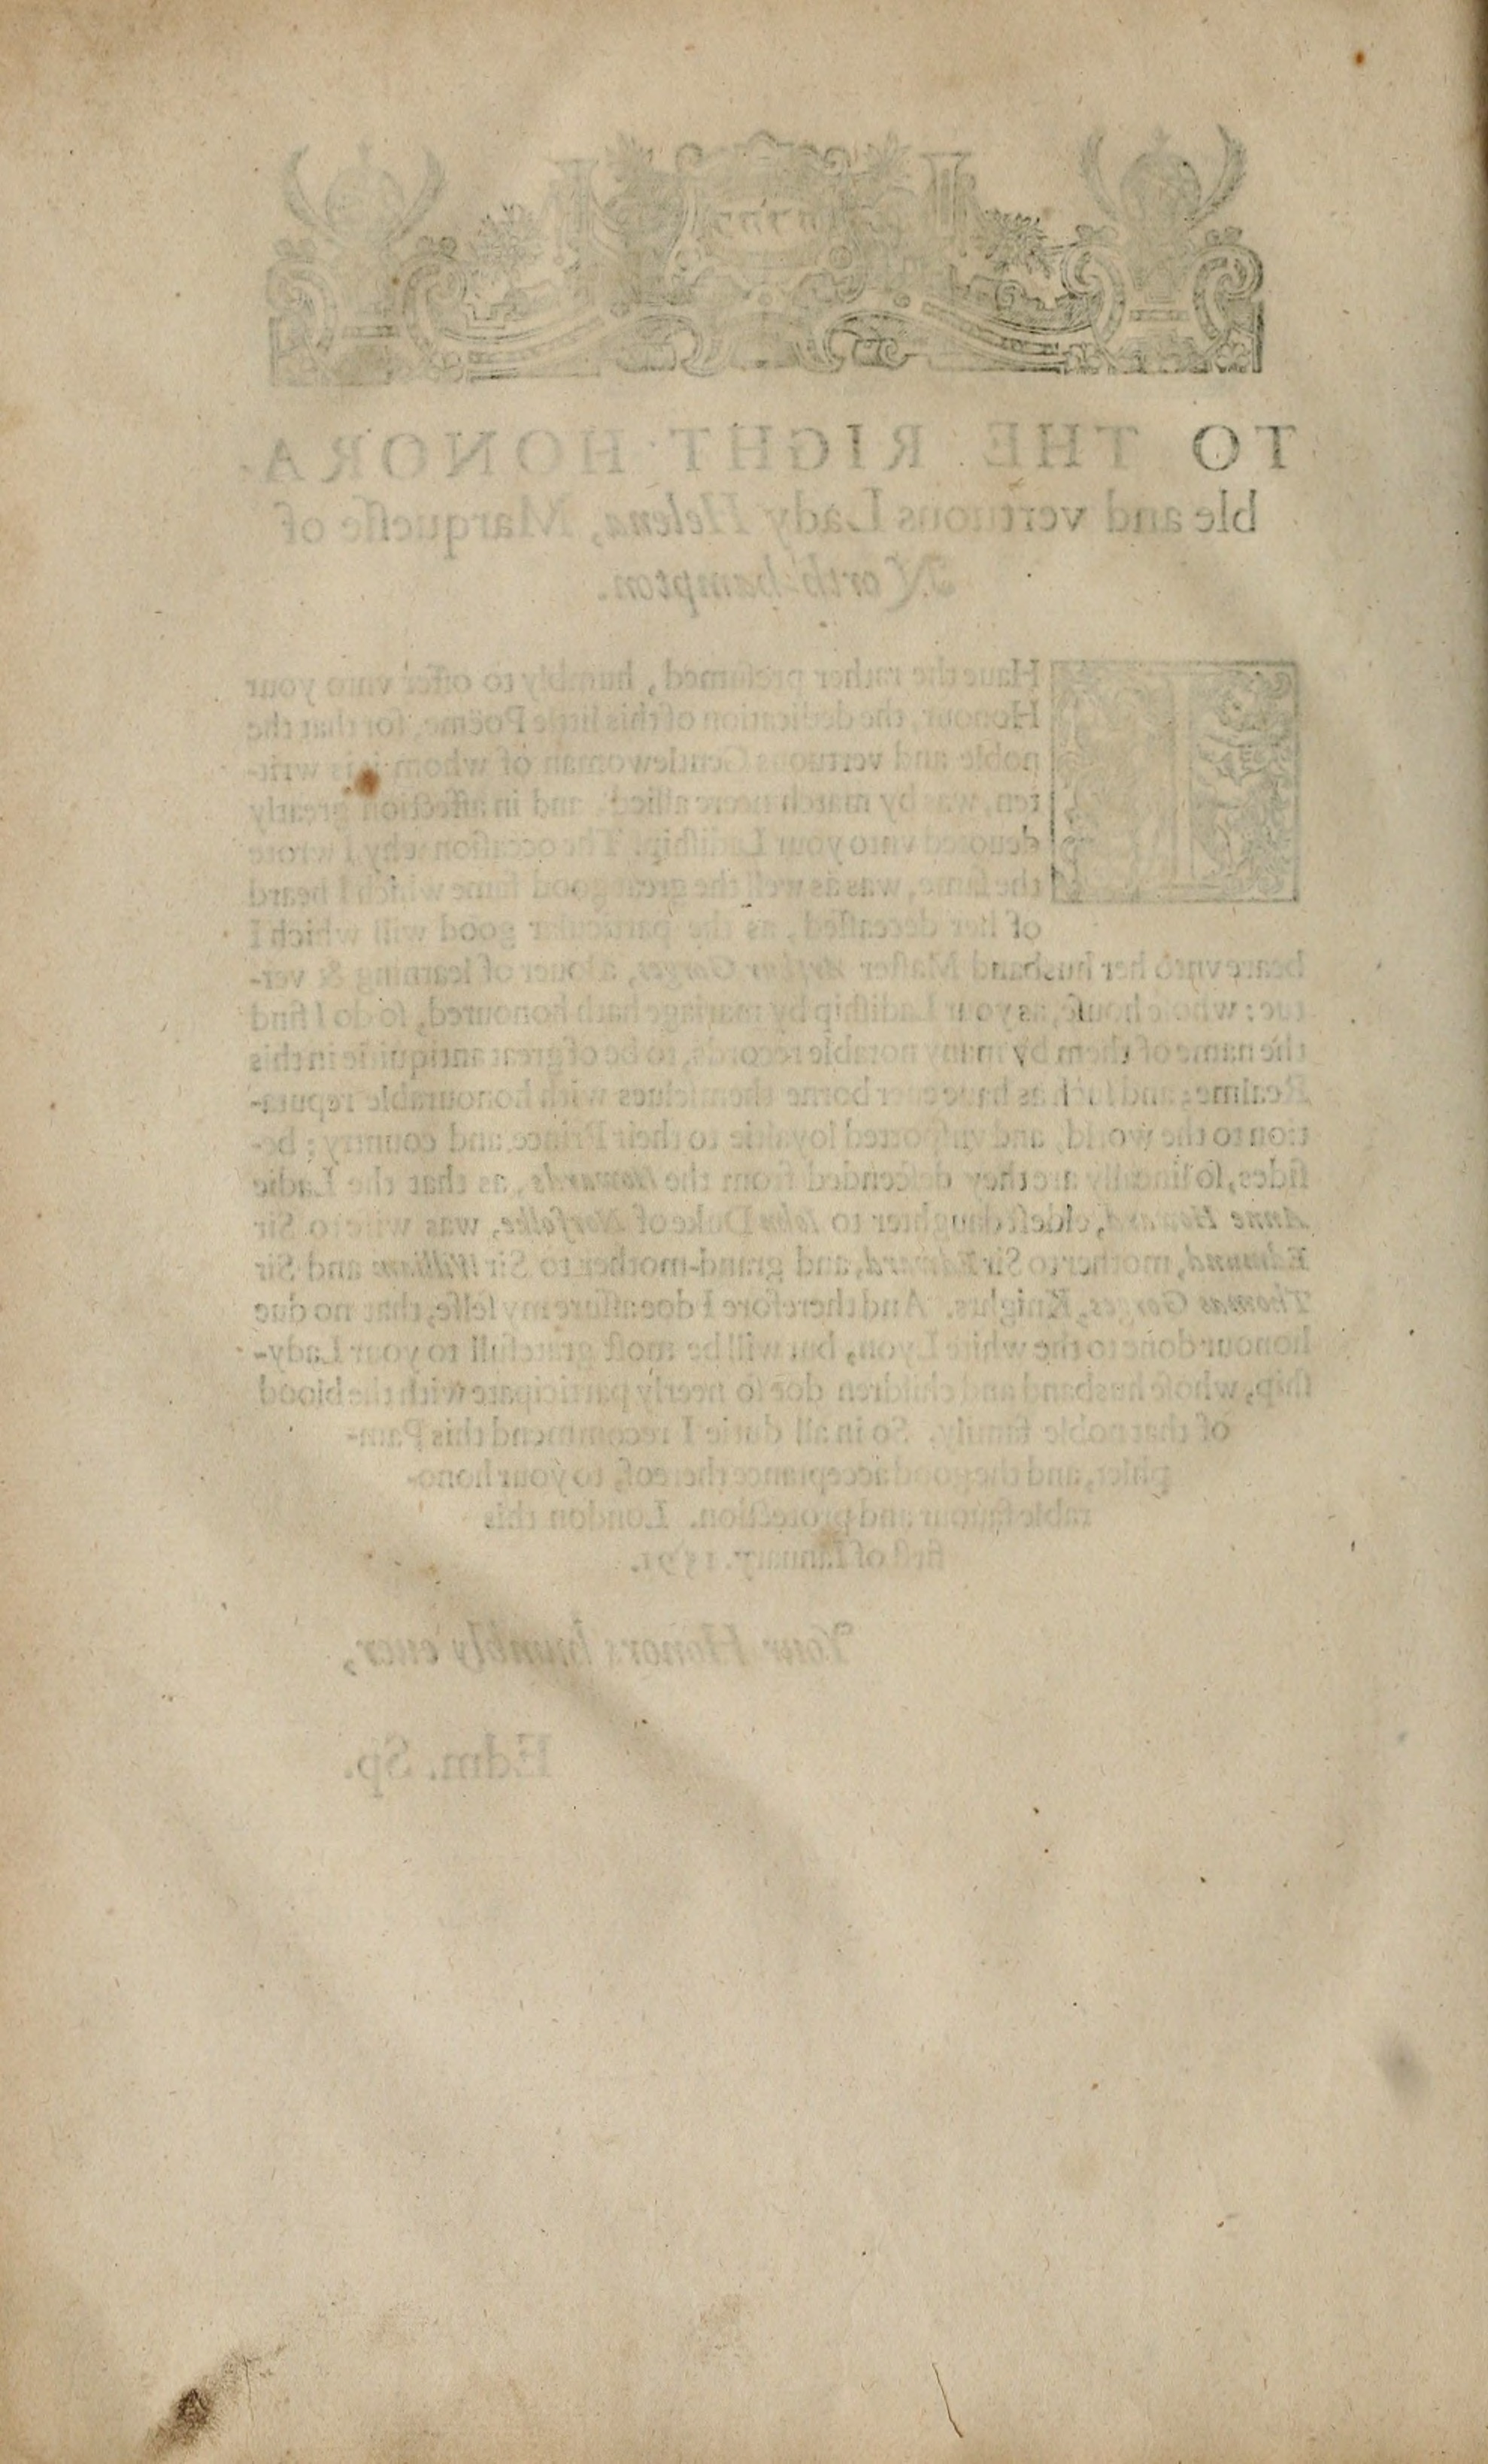 TO THE RIGHT HONORA
ble and vertuous Lady Helena, Marquesse of
North-hampton.
Haue the rather presumed, humbly to offer vnto your
Honour, the dedication of this little Poëme, for that the
noble and vertuous Gentlewoman of whom it is writ-
ten, was by match neere allied, and in affection greatly
deuoted vnto your Ladiship. The occasion why I wrote
the same, was as well the great good fame which I heard
of her deceassed, as the particular good will which I
beare vnto her husband Master Arthur Gorges, a louer of learning & ver-
tue: whose house, as your Ladiship by mariage hath honoured, so do I find
the name of them by many notable records, to be of great antiquitie in this
Realme; and such as haue euer borne themselues with honourable reputa-
tion to the world, and vnspotted loyaltie to their Prince and country: be-
sides, so lineally are they descended from the Howards, as that the Ladie
Anne Howard, eldest daughter to Iohn Duke of Norfolke, was wife to Sir
Edmund, mother to Sir Edward, and grand-mother to Sir William and Sir
Thomas Gorges, Knights. And therefore I do assure my selfe, that no due
honour done to the white Lyon, but will be most gratefull to your Lady-
ship, whose husband and children doe so neerly participate with the blood
of that noble family. So in all dutie I recommend this Pam-
phlet, and the good acceptance thereof, to your hono-
rable fauour and protection. London this
first of Ianuary. 1591.
Your Honors humbly euer,
Edm. Sp.